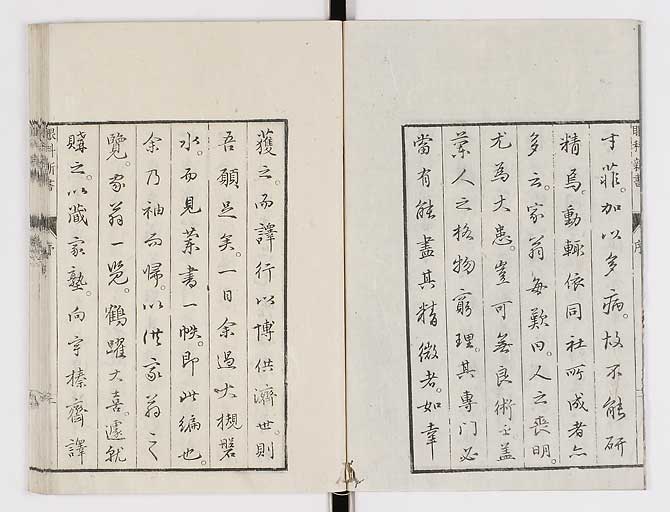 才菲。加以多病。故不能研
精焉。動輒依同社所成者亦
多云。家翁每歎曰。人之喪明。
尤爲大患。豈可無良術乎。蓋
蘭人之格物窮理。其專門必
當有能盡其精微者。如幸
眼科新書
序
獲之。而譯行以博供濟世。則
吾願足矣。一日余過大槻磐
水。而見蘭書一帙。即此編也。
余乃袖而歸。以供家翁之
覽。家翁一覽。鶴躍大喜。遽就
購之。以藏家塾。向宇榛齋譯
眼科新書
序